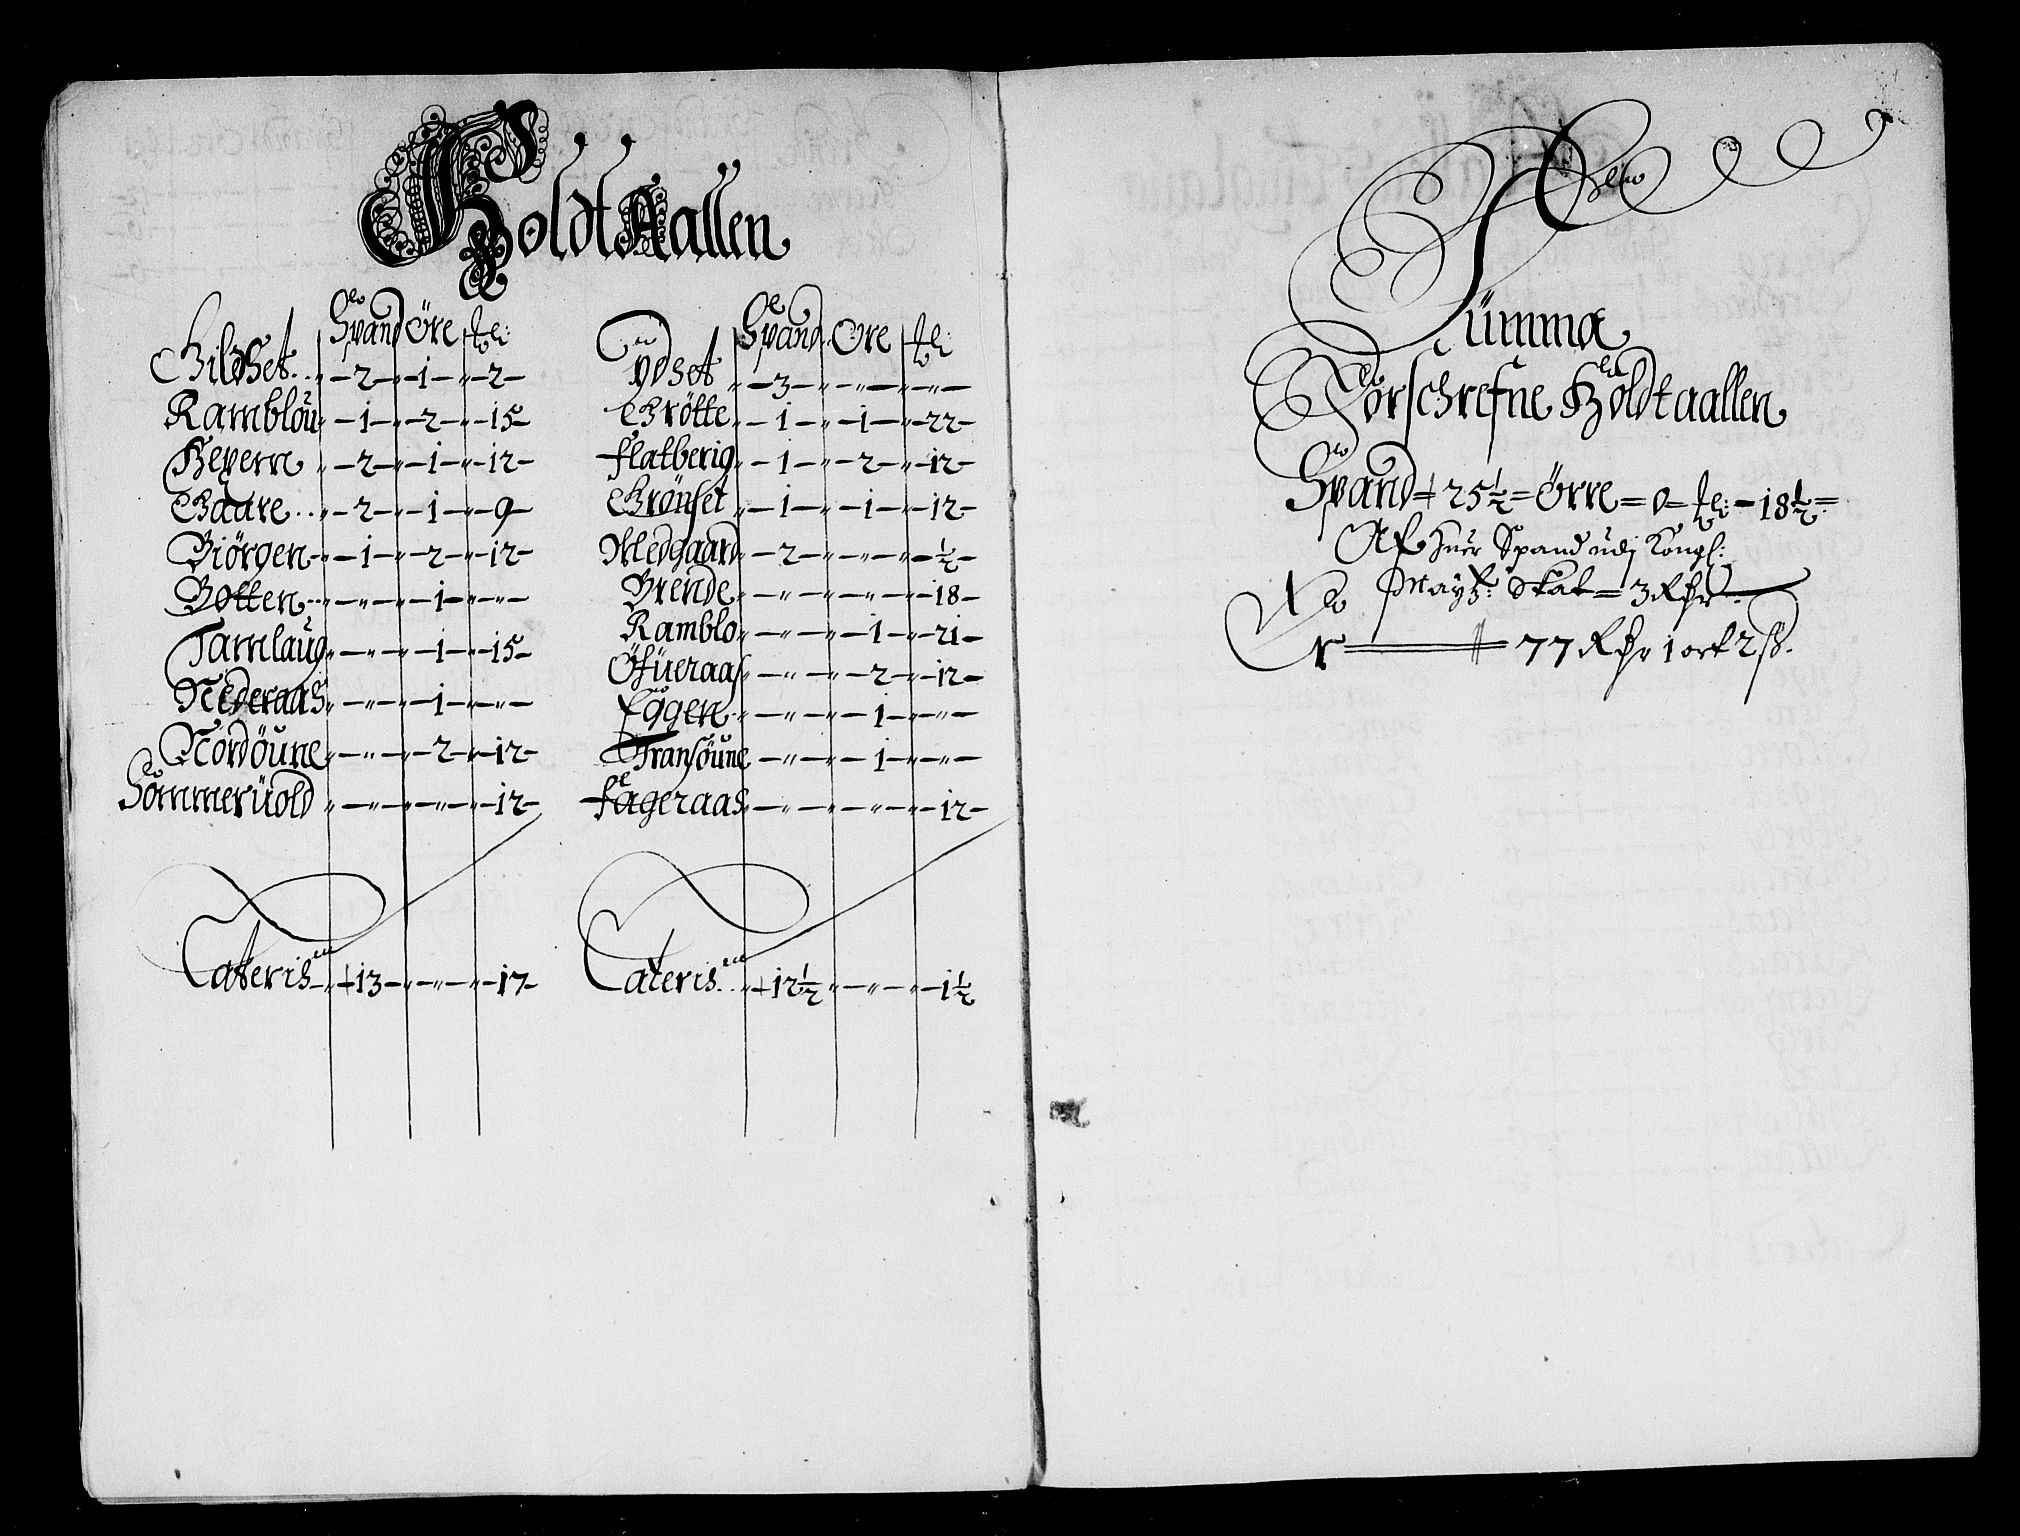 Holdt Aallen
Spand Öre
Gildset - 2 - 1 - 2 -
Ramblou - 1 - 2 - 15 -
Hevern - 2 - 1 - 12 -
Gaare - 2 - 1 - 9 -
Biörgen - 1 - 2 - 12 -
Botten - " - 1 - " -
Tamlaug - " - 1 - 15 -
Nederaas - " - 1 - " -
Nordöune - " - 2 - 12 -
Sommeruold - " - " - 12 -
Lateris - 13 - " - 17 -
Spand Öre
Ydset - 3 - " - " -
Grötte - 1 - 1 - 22 -
Flatberig - 1 - 2 - 12 -
Grönset - 1 - 1 - 12 -
Medgaard - 2 - " - ½ -
Brende - " - " - 18 -
Ramblo - " - 1 - 21 -
Öfüeraas - " - 2 - 12 -
Eggen - " - 1 - " -
Fransöune - " - 1 - " -
Fageraas - " - " - 12 -
Lateris - 12½ - " - 1½
Summa
Forschrefne Holdtaallen
Spand = 25½ = Örre = 0 = - 18½ =
Af huer Spand udj Kongl:
Maytz: Skat = 3 Rdr
Er = 77 Rdr 1 ort 2 ß.